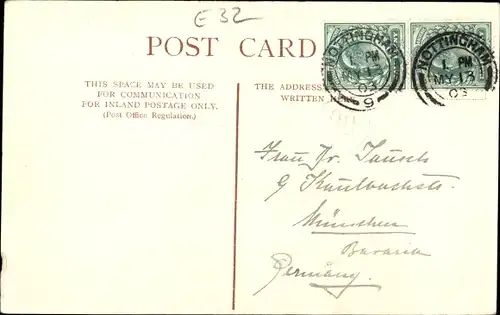 E 32
POST CARD
THIS SPACE MAY BE USED
FOR COMMUNICATION
FOR INLAND POSTAGE ONLY.
(Post Office Regulation.)
THE ADDRESS
WRITTEN
NOTTINGHAM
PM
MY 13
03
9
NOTTINGHAM
1 PM
MY 13
03
Frau Dr. Jausch
9 Kaulbachstr.
München
Bavaria
Germany.